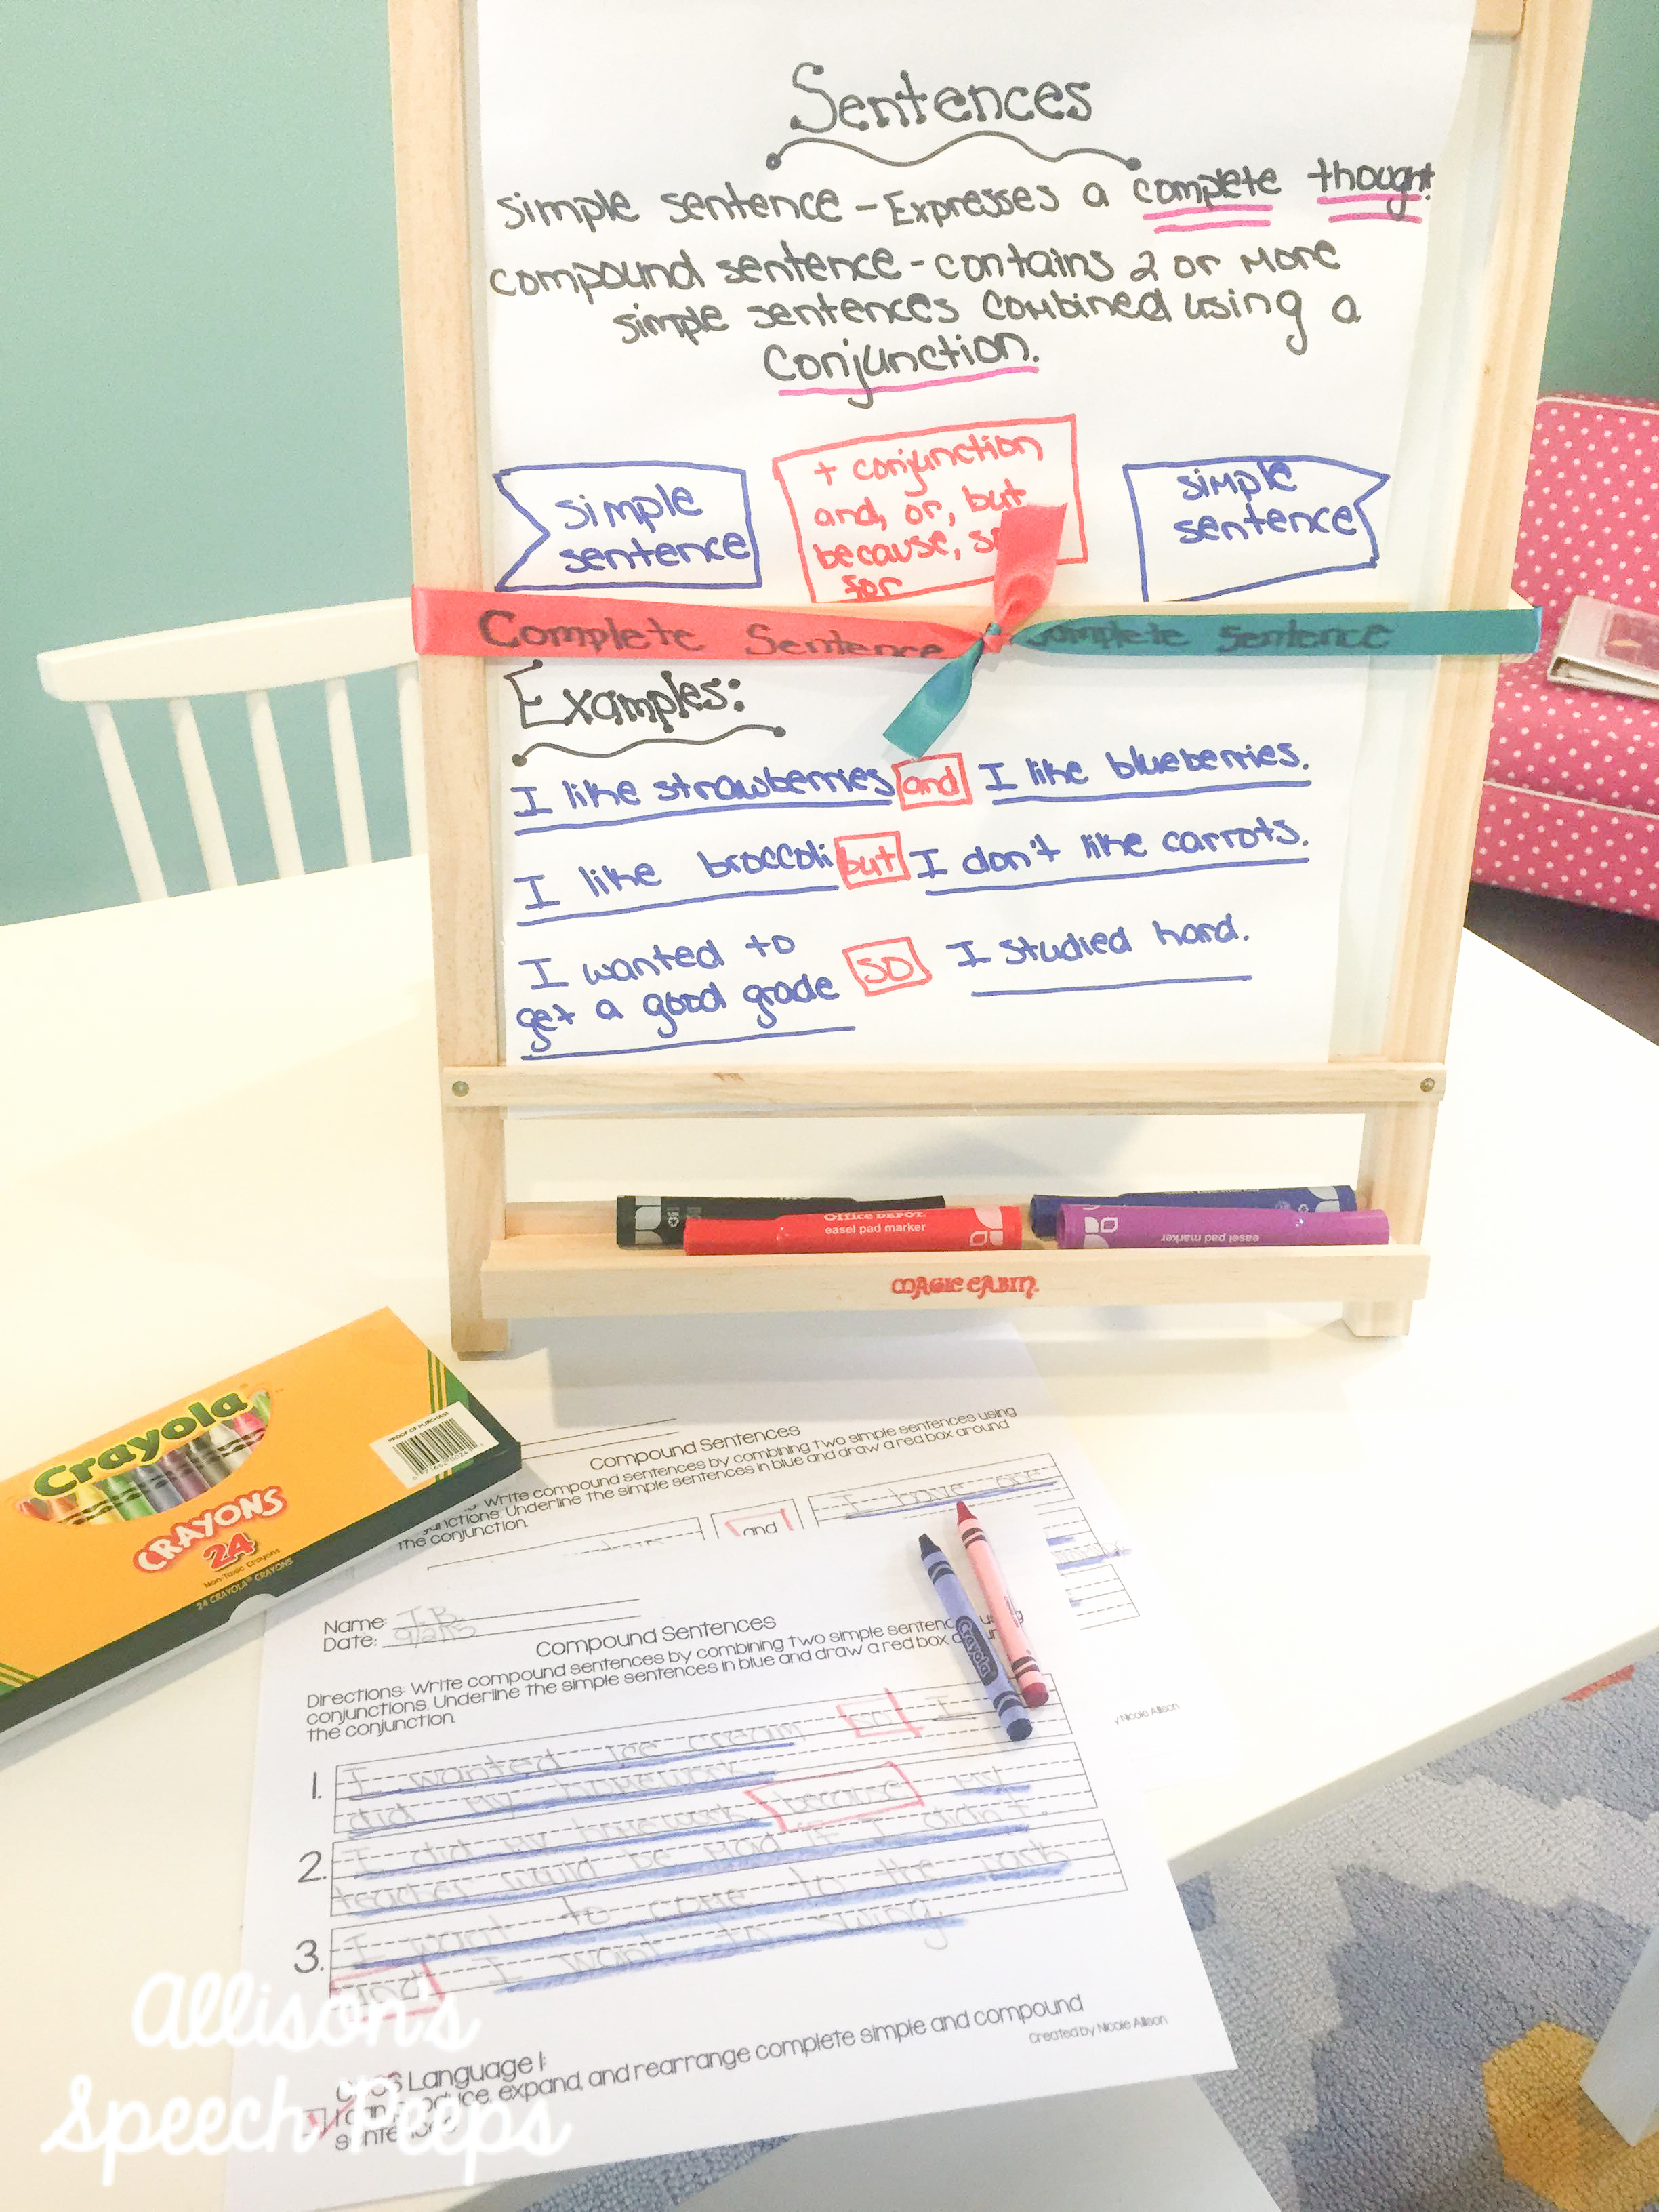 Sentences
simple sentence - Expresses a complete thought.
compound sentence - contains 2 or more
simple sentences combined using a
conjunction.
simple
sentence
+ conjunction
and, or, but
because,
for
simple
sentence
Complete Sentence
Complete Sentence
Examples:
I like strawberries and I like blueberries.
I like broccoli but I don't like carrots.
I wanted to
get a good grade so I studied hard.
Office DEPOT
easel pad marker
easel pad marker
MAGIC CABIN
Crayola
CRAYONS
24
Non-Toxic Crayons
24 CRAYOLA CRAYONS
PROOF OF PURCHASE
Compound Sentences
Write compound sentences by combining two simple sentences using
Underline the simple sentences in blue and draw a red box around
the conjunction.
and I have
y Nicole Allison
Name: J.B.
Date:
Compound Sentences
Directions: Write compound sentences by combining two simple sentences using
conjunctions. Underline the simple sentences in blue and draw a red box
the conjunction.
Crayola
1. I wanted ice cream I
did my homework
2. I did my homework because my
teacher would be mad if I didn't.
3. I want to come to the park
and I want to swing.
Language 1:
I can produce, expand, and rearrange complete simple and compound
sentences
Created by Nicole Allison
Allison's
Speech Peeps